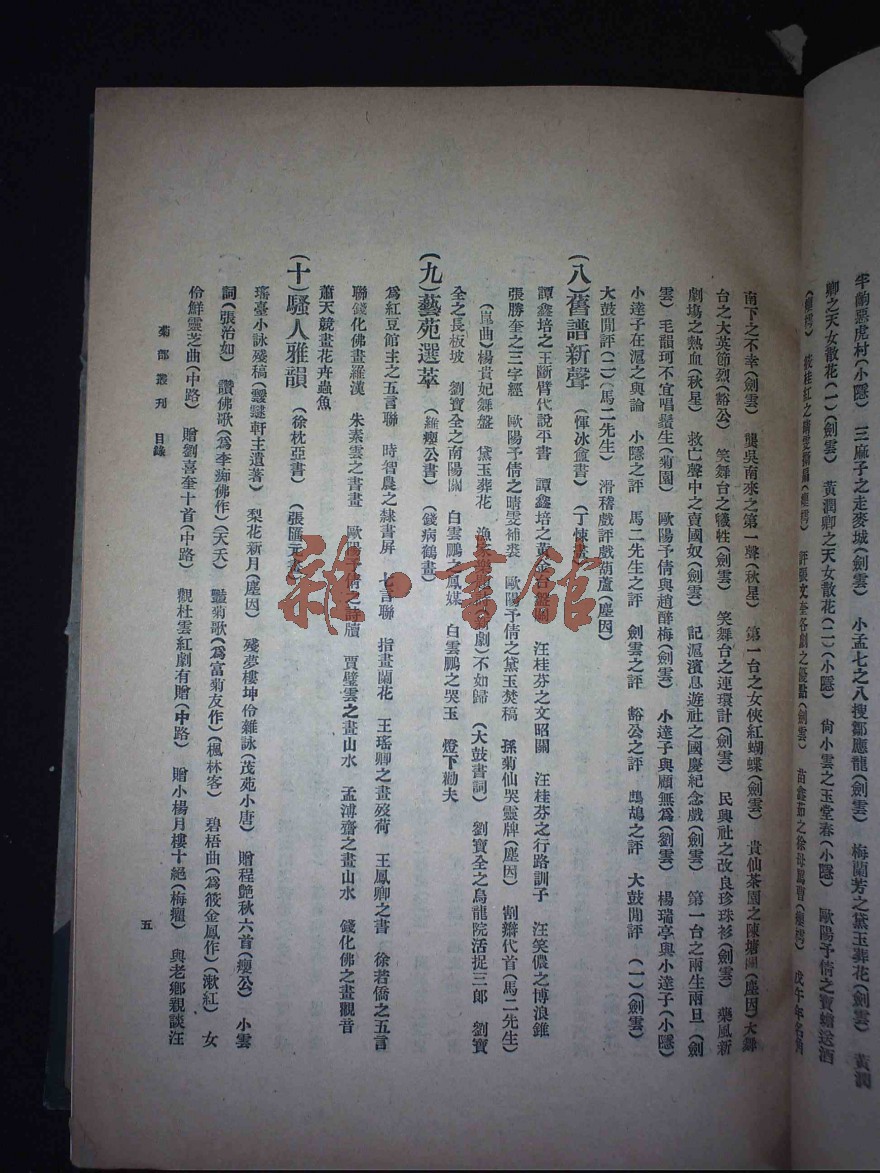 牢齣惡虎村(小隱) 三麻子之走麥城(劍雲) 小孟七之八搜鄒應龍(劍雲) 梅蘭芳之黛玉葬花(劍雲) 黃潤
卿之天女散花(一)(劍雲) 黃潤卿之天女散花(二)(小隱) 尙小雲之玉堂春(小隱) 歐陽予倩之寶蟾送酒
評張文奎各劇之優點(劍雲) 苗鑫茹之徐母罵曹 戊午年名角
南下之不幸(劍雲) 龔吳南來之第一聲(秋星) 第一台之女俠紅蝴蝶(劍雲) 貴仙茶園之陳塘關(塵因)大舞
台之大英節烈(豁公) 笑舞台之犧牲(劍雲) 笑舞台之連環計(劍雲) 民興社之改良珍珠衫(劍雲) 藥風新
劇塲之熱血(秋星) 救亡聲中之賣國奴(劍雲) 記滬濱息遊社之國慶紀念戲(劍雲) 第一台之兩生兩旦(劍
雲) 毛韻珂不宜唱鬚生(菊園) 歐陽予倩與趙醉梅(劍雲) 小達子與顧無爲(劉雲) 楊瑞亭與小達子(小隱)
小達子在滬之與論 小隱之評 馬二先生之評 劍雲之評 豁公之評 鷓鴣之評 大鼓閒評 (一)(劍雲)
大鼓閒評(二)(馬二先生) 滑稽戲評戲葫蘆(塵因)
(八)舊譜新聲 (惲冰龕書) (丁悚畫)
譚鑫培之王斷臂代說平書 譚鑫培之黃金台盤關 汪桂芬之文昭關 汪桂芬之行路訓子 汪笑儂之博浪錐
張勝奎之三字經 歐陽予倩之晴雯補裘 歐陽予倩之黛玉焚稿 孫菊仙哭靈牌(塵因) 割辮代首(馬二先生)
(崑曲)楊貴妃舞盤 黛玉葬花 漁家樂 不如歸 (大鼓書詞) 劉寶全之烏龍院活捉三郎 劉寶
全之長板坡 劉寶全之南陽關 白雲鵬之鳳媒 白雲鵬之哭玉 燈下勸夫
(九)藝苑選萃 (羅癭公書) (錢病鶴畫)
爲紅豆館主之五言聯 時智農之隸書屏 七言聯 指畫蘭花 王瑤卿之畫殘荷 王鳳卿之書 徐若僑之五言
聯錢化佛畫羅漢 朱素雲之書畫 歐陽予倩之詩牘 賈璧雲之畫山水 孟溥齋之畫山水 錢化佛之畫觀音
蕭天競畫花卉蟲魚
(十)騷人雅韻 (徐枕亞書) (張匯元畫)
瑤臺小詠殘稿 梨花新月(塵因) 殘夢樓坤伶雜詠(茂苑小唐) 贈程艶秋六首(癭公) 小雲
詞(張治如) 讚佛歌(爲李痴佛作)(天夭) 豔菊歌(爲富菊友作)(楓林客) 碧梧曲(爲筱金鳳作)(漱紅) 女
伶鮮靈芝曲(中路) 贈劉喜奎十首(中路) 觀杜雲紅劇有贈(中路) 贈小楊月樓十絕(梅癯) 與老鄉親談汪
菊部叢刊 目錄
五
雜·書館